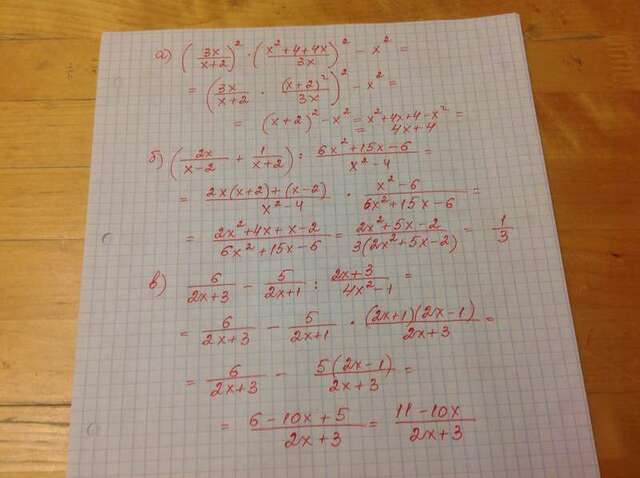 а) (3x/(x+2))² · ((x²+4+4x)/3x)² − x² =
= (3x/(x+2) · (x+2)²/3x)² − x² =
= (x+2)² − x² = x²+4x+4−x² =
= 4x+4
б) (2x/(x−2) + 1/(x+2)) : (6x²+15x−6)/(x²−4) =
= (2x(x+2)+(x−2))/(x²−4) · (x²−6)/(6x²+15x−6) =
= (2x²+4x+x−2)/(6x²+15x−6) = (2x²+5x−2)/(3(2x²+5x−2)) = 1/3
в) 6/(2x+3) − 5/(2x+1) : (2x+3)/(4x²−1) =
= 6/(2x+3) − 5/(2x+1) · ((2x+1)(2x−1))/(2x+3) =
= 6/(2x+3) − 5(2x−1)/(2x+3) =
= (6−10x+5)/(2x+3) = (11−10x)/(2x+3)